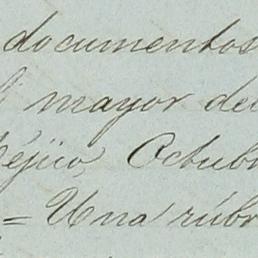 documentos
mayor del
Méjico, Octubr
= Una rúbr